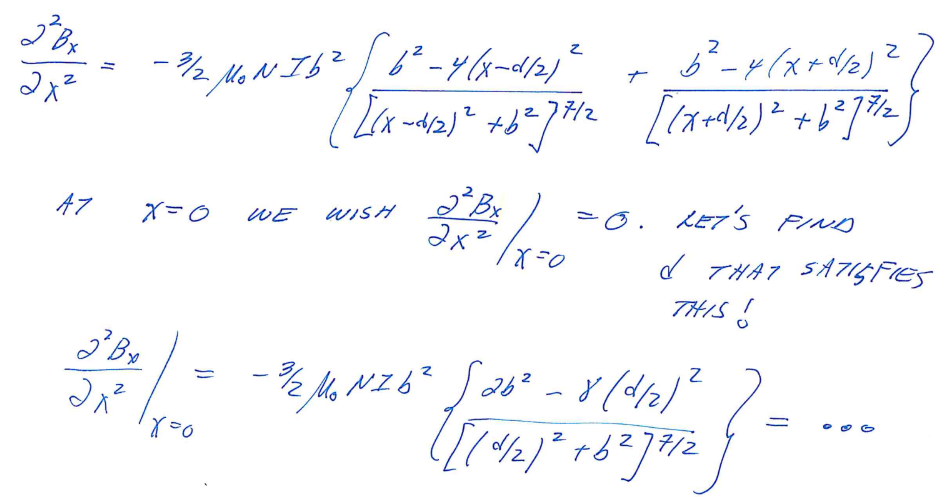 ∂²Bₓ/∂x² = -3/2 μ₀ N I b² { b² - 4(x-d/2)² / [(x-d/2)² + b²]^7/2 + b² - 4(x+d/2)² / [(x+d/2)² + b²]^7/2 }
AT x=0 WE WISH ∂²Bₓ/∂x² |x=0 = 0. LET'S FIND
d THAT SATISFIES
THIS!
∂²Bₓ/∂x² |x=0 = -3/2 μ₀ N I b² { 2b² - 8(d/2)² / [(d/2)² + b²]^7/2 } = ...